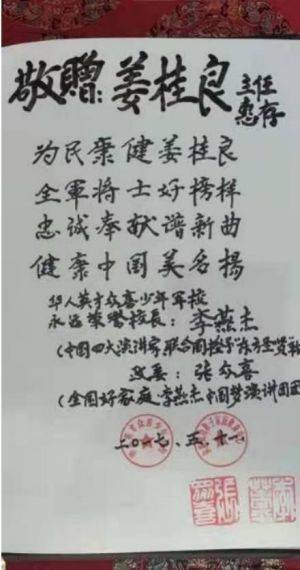 敬贈:姜桂良主任
惠存
为民康健姜桂良
全軍将士好榜样
忠诚奉献谱新曲
健康中国美名揚
华人英才众喜少年军校
永远荣誉校长:李燕杰
(中国四大演讲家、联合国授予东方圣贤
张众喜
(全国好家庭.李燕杰中国梦演讲团团
二〇一七、五、十一